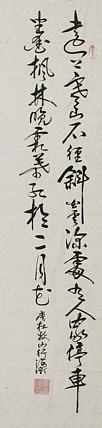 遠上寒山石徑斜白雲深處有人家停車
坐愛楓林晚霜葉紅於二月花唐杜牧山行